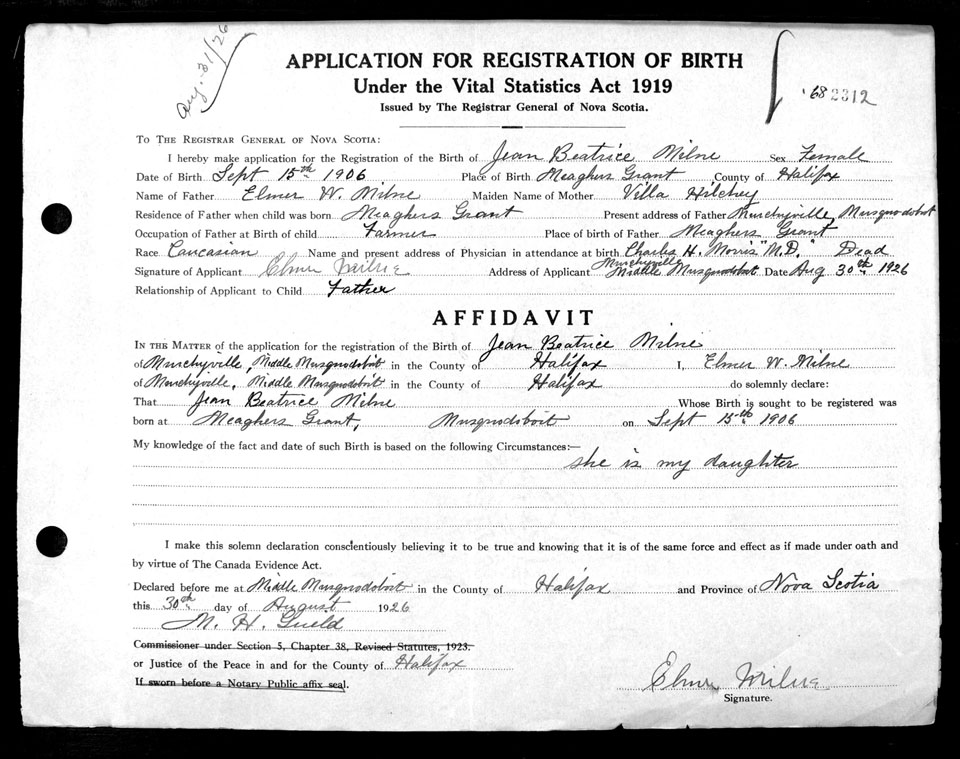 Aug. 31/26
68 2312
APPLICATION FOR REGISTRATION OF BIRTH
Under the Vital Statistics Act 1919
Issued by The Registrar General of Nova Scotia.
TO THE REGISTRAR GENERAL OF NOVA SCOTIA:
I hereby make application for the Registration of the Birth of Jean Beatrice Milne Sex Female
Date of Birth Sept 15th 1906 Place of Birth Meaghers Grant County of Halifax
Name of Father Elmer W. Milne Maiden Name of Mother Villa Hilchey
Residence of Father when child was born Meaghers Grant Present address of Father Murchyville, Musquodoboit
Occupation of Father at Birth of child Farmer Place of birth of Father Meaghers Grant
Race Caucasian Name and present address of Physician in attendance at birth Charles H. Morris "M.D." Dead
Signature of Applicant Elmer Milne Address of Applicant Murchyville Middle Musquodoboit Date Aug 30th 1926
Relationship of Applicant to Child Father
AFFIDAVIT
IN THE MATTER of the application for the registration of the Birth of Jean Beatrice Milne
of Murchyville, Middle Musquodoboit in the County of Halifax I, Elmer W. Milne
of Murchyville, Middle Musquodoboit in the County of Halifax do solemnly declare:
That Jean Beatrice Milne Whose Birth is sought to be registered was
born at Meaghers Grant, Musquodoboit on Sept 15th 1906
My knowledge of the fact and date of such Birth is based on the following Circumstances:—
she is my daughter
I make this solemn declaration conscientiously believing it to be true and knowing that it is of the same force and effect as if made under oath and
by virtue of The Canada Evidence Act.
Declared before me at Middle Musquodoboit in the County of Halifax and Province of Nova Scotia
this 30th day of August 1926
M. H. Guild
Commissioner under Section 5, Chapter 38, Revised Statutes, 1923.
or Justice of the Peace in and for the County of Halifax
If sworn before a Notary Public affix seal.
Elmer Milne
Signature.